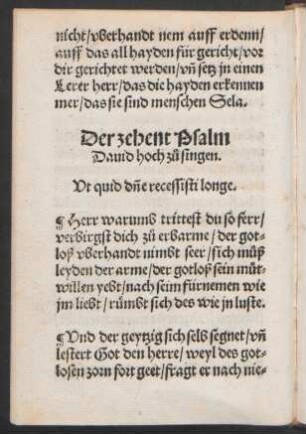 nicht/vberhandt nem auff erdenn/
auff das all hayden für gericht/vor
dir gerichtet werden/vñ setz jn einen
Lerer herr/das die hayden erkennen
mer/das sie sind menschen Sela.
Der zehent Psalm
Dauid hoch zů singen.
Vt quid dñe recessisti longe.
¶ Herr warumb trittest du so ferr/
verbirgst dich zů erbarme/der got-
loß vberhandt nimbt seer/sich můß
leyden der arme/der gotloß sein můt-
willen yebt/nach seim fürnemen wie
jm liebt/růmbt sich des wie jn luste.
¶ Vnd der geytzig sich selb segnet/vñ
lestert Got den herre/weyl des got-
losen zorn fort geet/fragt er nach nie-